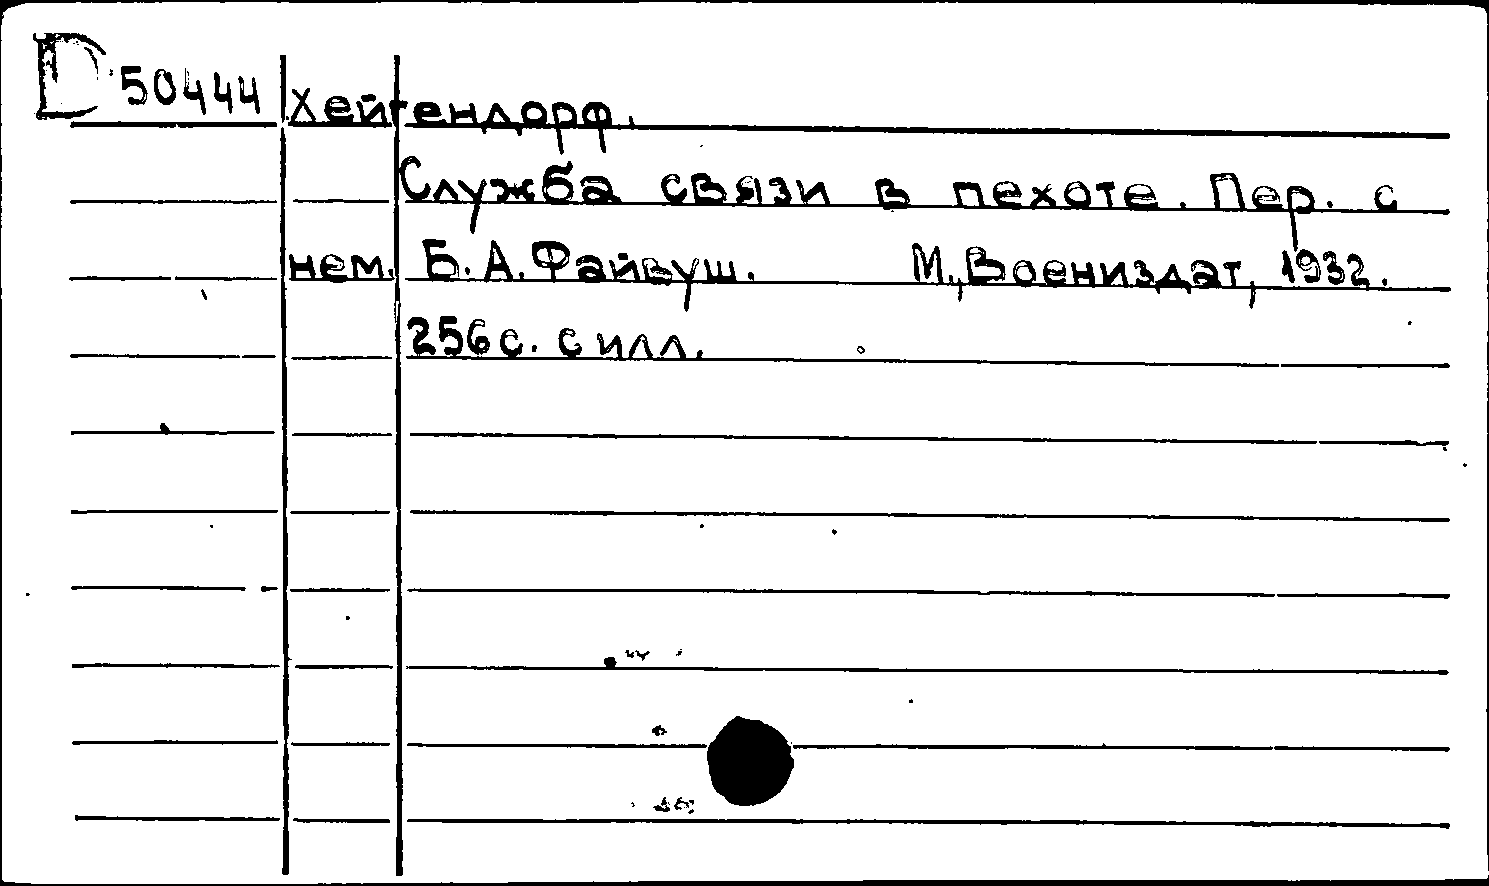 D 50444 Хейгендорф.
Служба связи в пехоте. Пер. с
нем. Б. А. Файвуш. М., Воениздат, 1932.
256 с. с илл.